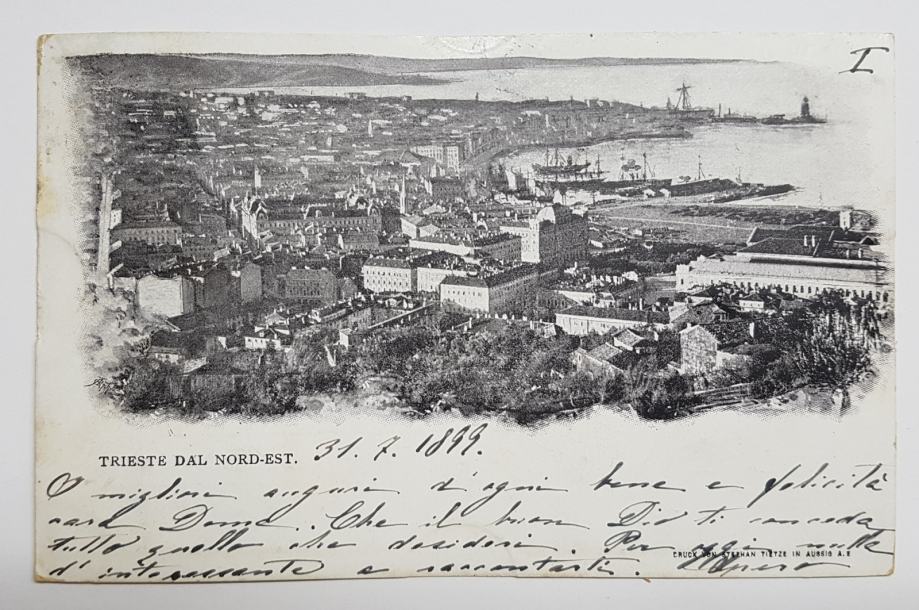 I
TRIESTE DAL NORD-EST. 31. 7. 1899.
O migliori auguri d'ogni bene e felicità
Che il buon Dio ti conceda
tutto quello che desideri. Per oggi nulla
DRUCK VON STEPHAN TIETZE IN AUSSIG A. E
d'interessante a raccontarti. Spero